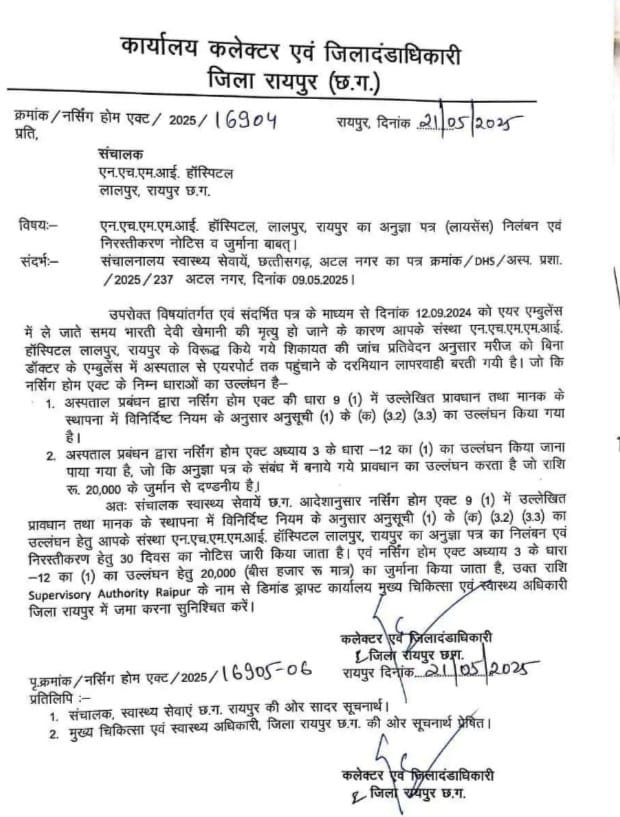 कार्यालय कलेक्टर एवं जिलादंडाधिकारी
जिला रायपुर (छ.ग.)
क्रमांक/नर्सिंग होम एक्ट/ 2025/16904 रायपुर, दिनांक 21/05/2025
प्रति,
संचालक
एन.एच.एम.आई. हॉस्पिटल
लालपुर, रायपुर छ.ग.
विषयः– एन.एच.एम.एम.आई. हॉस्पिटल, लालपुर, रायपुर का अनुज्ञा पत्र (लायसेंस) निलंबन एवं
निरस्तीकरण नोटिस व जुर्माना बाबत्।
संदर्भः– संचालनालय स्वास्थ्य सेवायें, छत्तीसगढ़, अटल नगर का पत्र क्रमांक/DHS/अस्प. प्रशा.
/2025/237 अटल नगर, दिनांक 09.05.2025।
उपरोक्त विषयांतर्गत एवं संदर्भित पत्र के माध्यम से दिनांक 12.09.2024 को एयर एम्बुलेंस
में ले जाते समय भारती देवी खेमानी की मृत्यु हो जाने के कारण आपके संस्था एन.एच.एम.एम.आई.
हॉस्पिटल लालपुर, रायपुर के विरूद्ध किये गये शिकायत की जांच प्रतिवेदन अनुसार मरीज को बिना
डॉक्टर के एम्बुलेंस में अस्पताल से एयरपोर्ट तक पहुंचाने के दरमियान लापरवाही बरती गयी है। जो कि
नर्सिंग होम एक्ट के निम्न धाराओं का उल्लंघन है–
1. अस्पताल प्रबंधन द्वारा नर्सिंग होम एक्ट की धारा 9 (1) में उल्लेखित प्रावधान तथा मानक के
स्थापना में विनिर्दिष्ट नियम के अनुसार अनुसूची (1) के (क) (3.2) (3.3) का उल्लंघन किया गया
है।
2. अस्पताल प्रबंधन द्वारा नर्सिंग होम एक्ट अध्याय 3 के धारा –12 का (1) का उल्लंघन किया जाना
पाया गया है, जो कि अनुज्ञा पत्र के संबंध में बनाये गये प्रावधान का उल्लंघन करता है जो राशि
रू. 20,000 के जुर्मान से दण्डनीय है।
अतः संचालक स्वास्थ्य सेवायें छ.ग. आदेशानुसार नर्सिंग होम एक्ट 9 (1) में उल्लेखित
प्रावधान तथा मानक के स्थापना में विनिर्दिष्ट नियम के अनुसार अनुसूची (1) के (क) (3.2) (3.3) का
उल्लंघन हेतु आपके संस्था एन.एच.एम.एम.आई. हॉस्पिटल लालपुर, रायपुर का अनुज्ञा पत्र का निलंबन एवं
निरस्तीकरण हेतु 30 दिवस का नोटिस जारी किया जाता है। एवं नर्सिंग होम एक्ट अध्याय 3 के धारा
–12 का (1) का उल्लंघन हेतु 20,000 (बीस हजार रू मात्र) का जुर्माना किया जाता है, उक्त राशि
Supervisory Authority Raipur के नाम से डिमांड ड्राफ्ट कार्यालय मुख्य चिकित्सा एवं स्वास्थ्य अधिकारी
जिला रायपुर में जमा करना सुनिश्चित करें।
कलेक्टर एवं जिलादंडाधिकारी
जिला रायपुर छ.ग.
पृ.क्रमांक/नर्सिंग होम एक्ट/2025/16905-06 रायपुर दिनांक 21/05/2025
प्रतिलिपि :–
1. संचालक, स्वास्थ्य सेवाएं छ.ग. रायपुर की ओर सादर सूचनार्थ।
2. मुख्य चिकित्सा एवं स्वास्थ्य अधिकारी, जिला रायपुर छ.ग. की ओर सूचनार्थ प्रेषित।
कलेक्टर एवं जिलादंडाधिकारी
जिला रायपुर छ.ग.